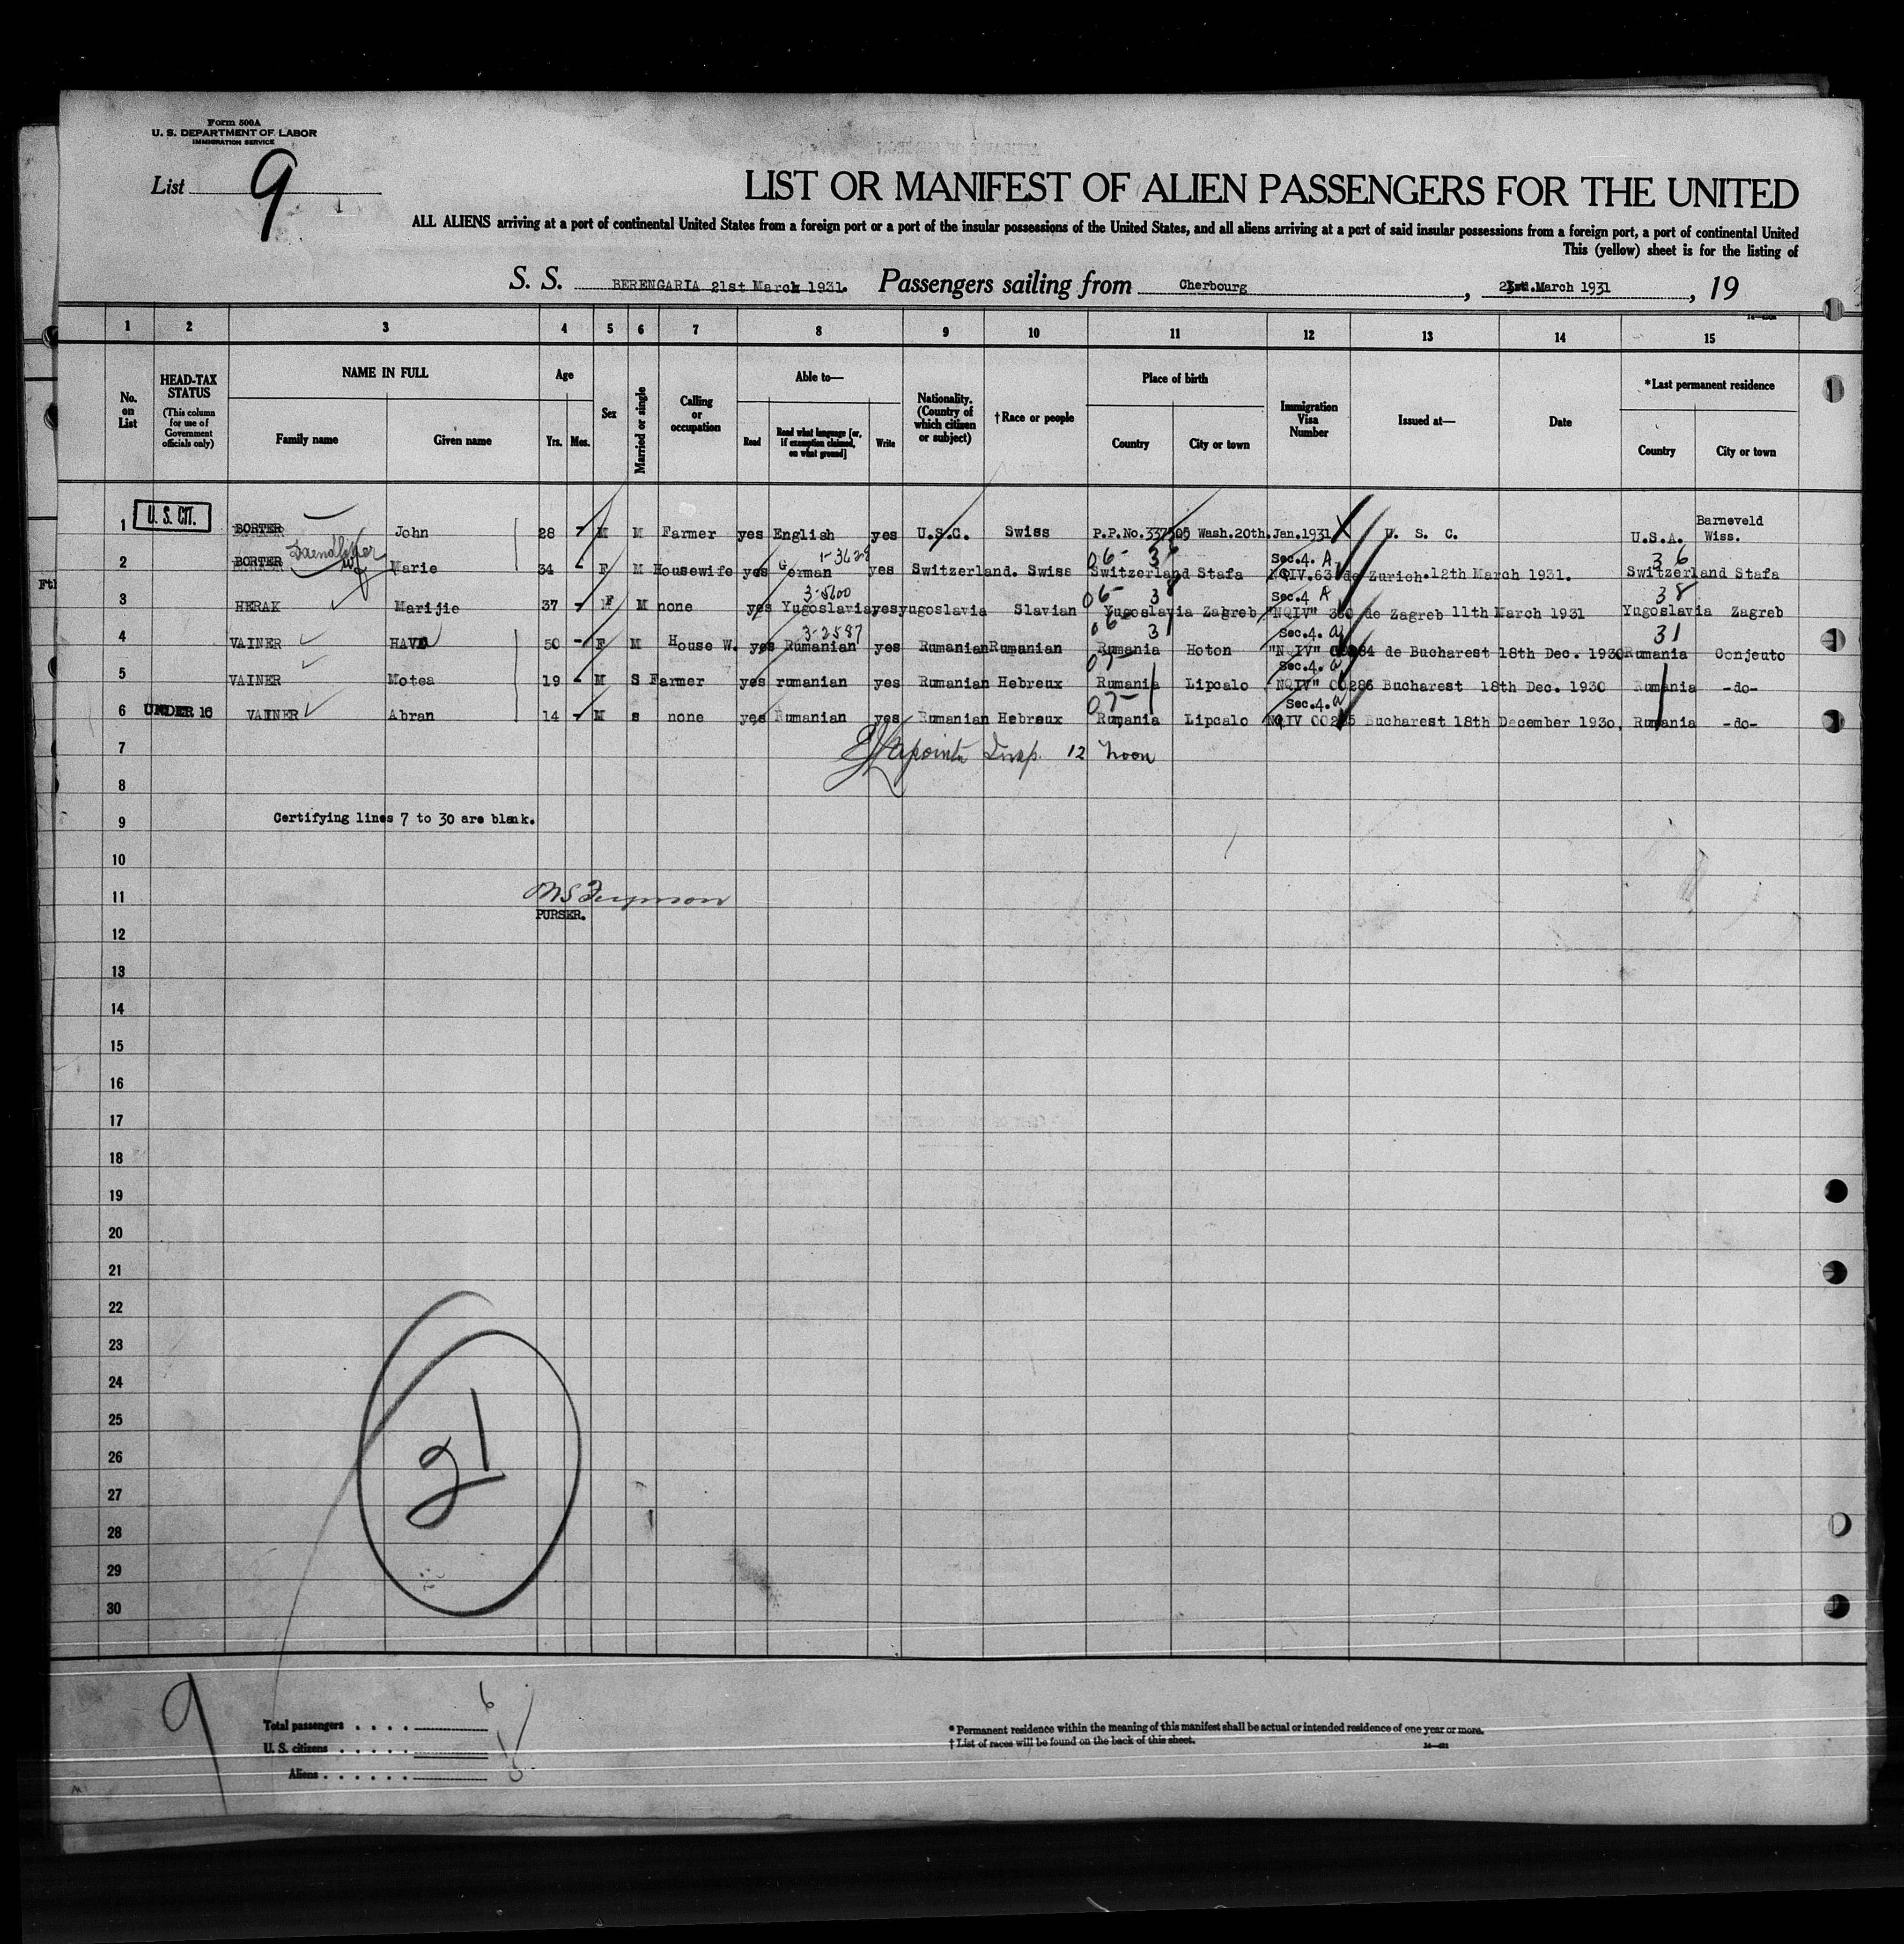 Form 500A
U. S. DEPARTMENT OF LABOR
IMMIGRATION SERVICE
List 9
LIST OR MANIFEST OF ALIEN PASSENGERS FOR THE UNITED
ALL ALIENS arriving at a port of continental United States from a foreign port or a port of the insular possessions of the United States, and all aliens arriving at a port of said insular possessions from a foreign port, a port of continental United
This (yellow) sheet is for the listing of
S. S. BERENGARIA 21st March 1931. Passengers sailing from Cherbourg, March 1931, 19
1 2 3 4 5 6 7 8 9 10 11 12 13 14 15
No. on List
HEAD-TAX STATUS
(This column for use of Government officials only)
NAME IN FULL
Family name
Given name
Age
Yrs. Mos.
Sex
Married or single
Calling or occupation
Able to—
Read
Read what language [or, if exemption claimed, on what ground]
Write
Nationality. (Country of which citizen or subject)
†Race or people
Place of birth
Country
City or town
Immigration Visa Number
Issued at—
Date
*Last permanent residence
Country
City or town
1 U. S. CIT. BORTER John 28 - M M Farmer yes English yes U.S.C. Swiss P.P.No.337505 Wash.20th.Jan.1931 U. S. C. U.S.A. Barneveld Wiss.
1-3628 06- 36 Sec.4. A. 36
2 BORTER Marie 34 - F M Housewife yes German yes Switzerland. Swiss Switzerland Stafa NQIV.63 de Zurich.12th March 1931. Switzerland Stafa
3-5600 06- 38 Sec.4 A 38
3 HERAK Marijie 37 - F M none yes Yugoslavia yes yugoslavia Slavian Yugoslavia Zagreb "NQIV" 330 de Zagreb 11th March 1931 Yugoslavia Zagreb
3-2587 06- 31 Sec.4. a 31
4 VAINER HAVA 50 - F M House W. yes Rumanian yes Rumanian Rumanian Rumania Hoton "NQIV" 00284 de Bucharest 18th Dec. 1930 Rumania Conjeuto
07- Sec.4. a
5 VAINER Motea 19 - M S Farmer yes rumanian yes Rumanian Hebreux Rumania Lipcalo "NQIV" 00286 Bucharest 18th Dec. 1930 Rumania -do-
07- Sec.4.a
6 UNDER 16 VAINER Abran 14 - M s none yes Rumanian yes Rumanian Hebreux Rumania Lipcalo NQIV 00285 Bucharest 18th December 1930. Rumania -do-
7 Lapointe Insp. 12 Noon
8
9 Certifying lines 7 to 30 are blank.
10
11
PURSER.
12
13
14
15
16
17
18
19
20
21
22
23
24
25
26
27
28
29
30
21
9
Total passengers . . . . 6
U. S. citizens . . . . . 1
Aliens . . . . . . 5
* Permanent residence within the meaning of this manifest shall be actual or intended residence of one year or more.
† List of races will be found on the back of this sheet.